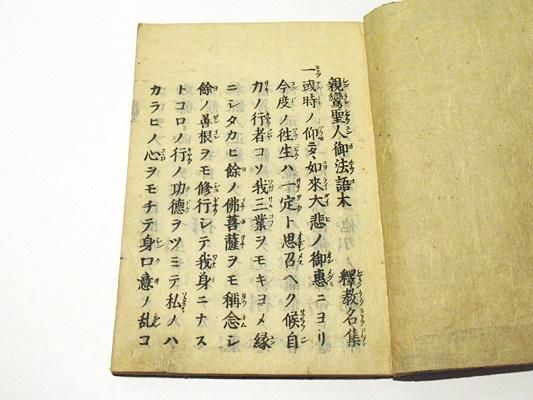 親鸞聖人御法語 釋教名集
一或時ノ仰ニ如來大悲ノ御惠ニヨリ
今度ノ徃生ハ一定ト思召ヘク候自
力ノ行者コソ我三業ヲモキヨメ縁
ニシタカヒ餘ノ佛菩薩ヲモ稱念シ
餘ノ善根ヲモ修行シテ我身ニナス
トコロノ行ノ功德ヲツミテ私ノハ
カラヒノ心ヲモチテ身口意ノ乱コ